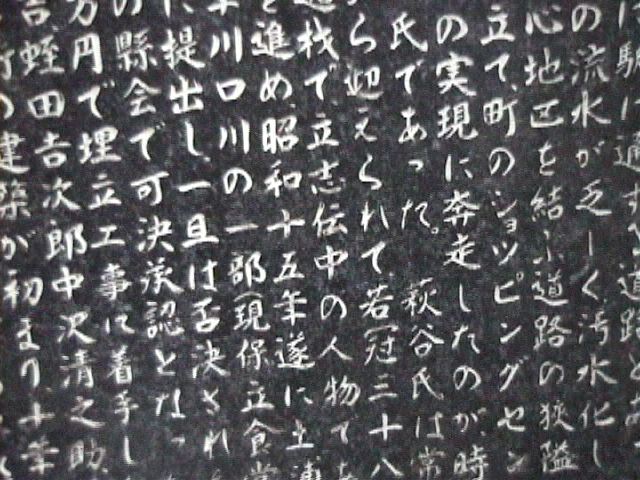 に駅に通ずる道路とか
の流水が乏しく汚水化し
心地区を結ぶ道路の狭隘
立て、町のショッピングセン
の実現に奔走したのが、時
氏であった。萩谷氏は常
ら迎えられて、若冠三十八
抜で立志伝中の人物であ
を進め、昭和十五年遂に土浦
川口川の一部(現保立食堂
に提出し、一旦は否決され
の縣会で可決承認となっ
万円で埋立工事に着手し
蛭田吉次郎、中沢清之助、
の建築が初まり、十年